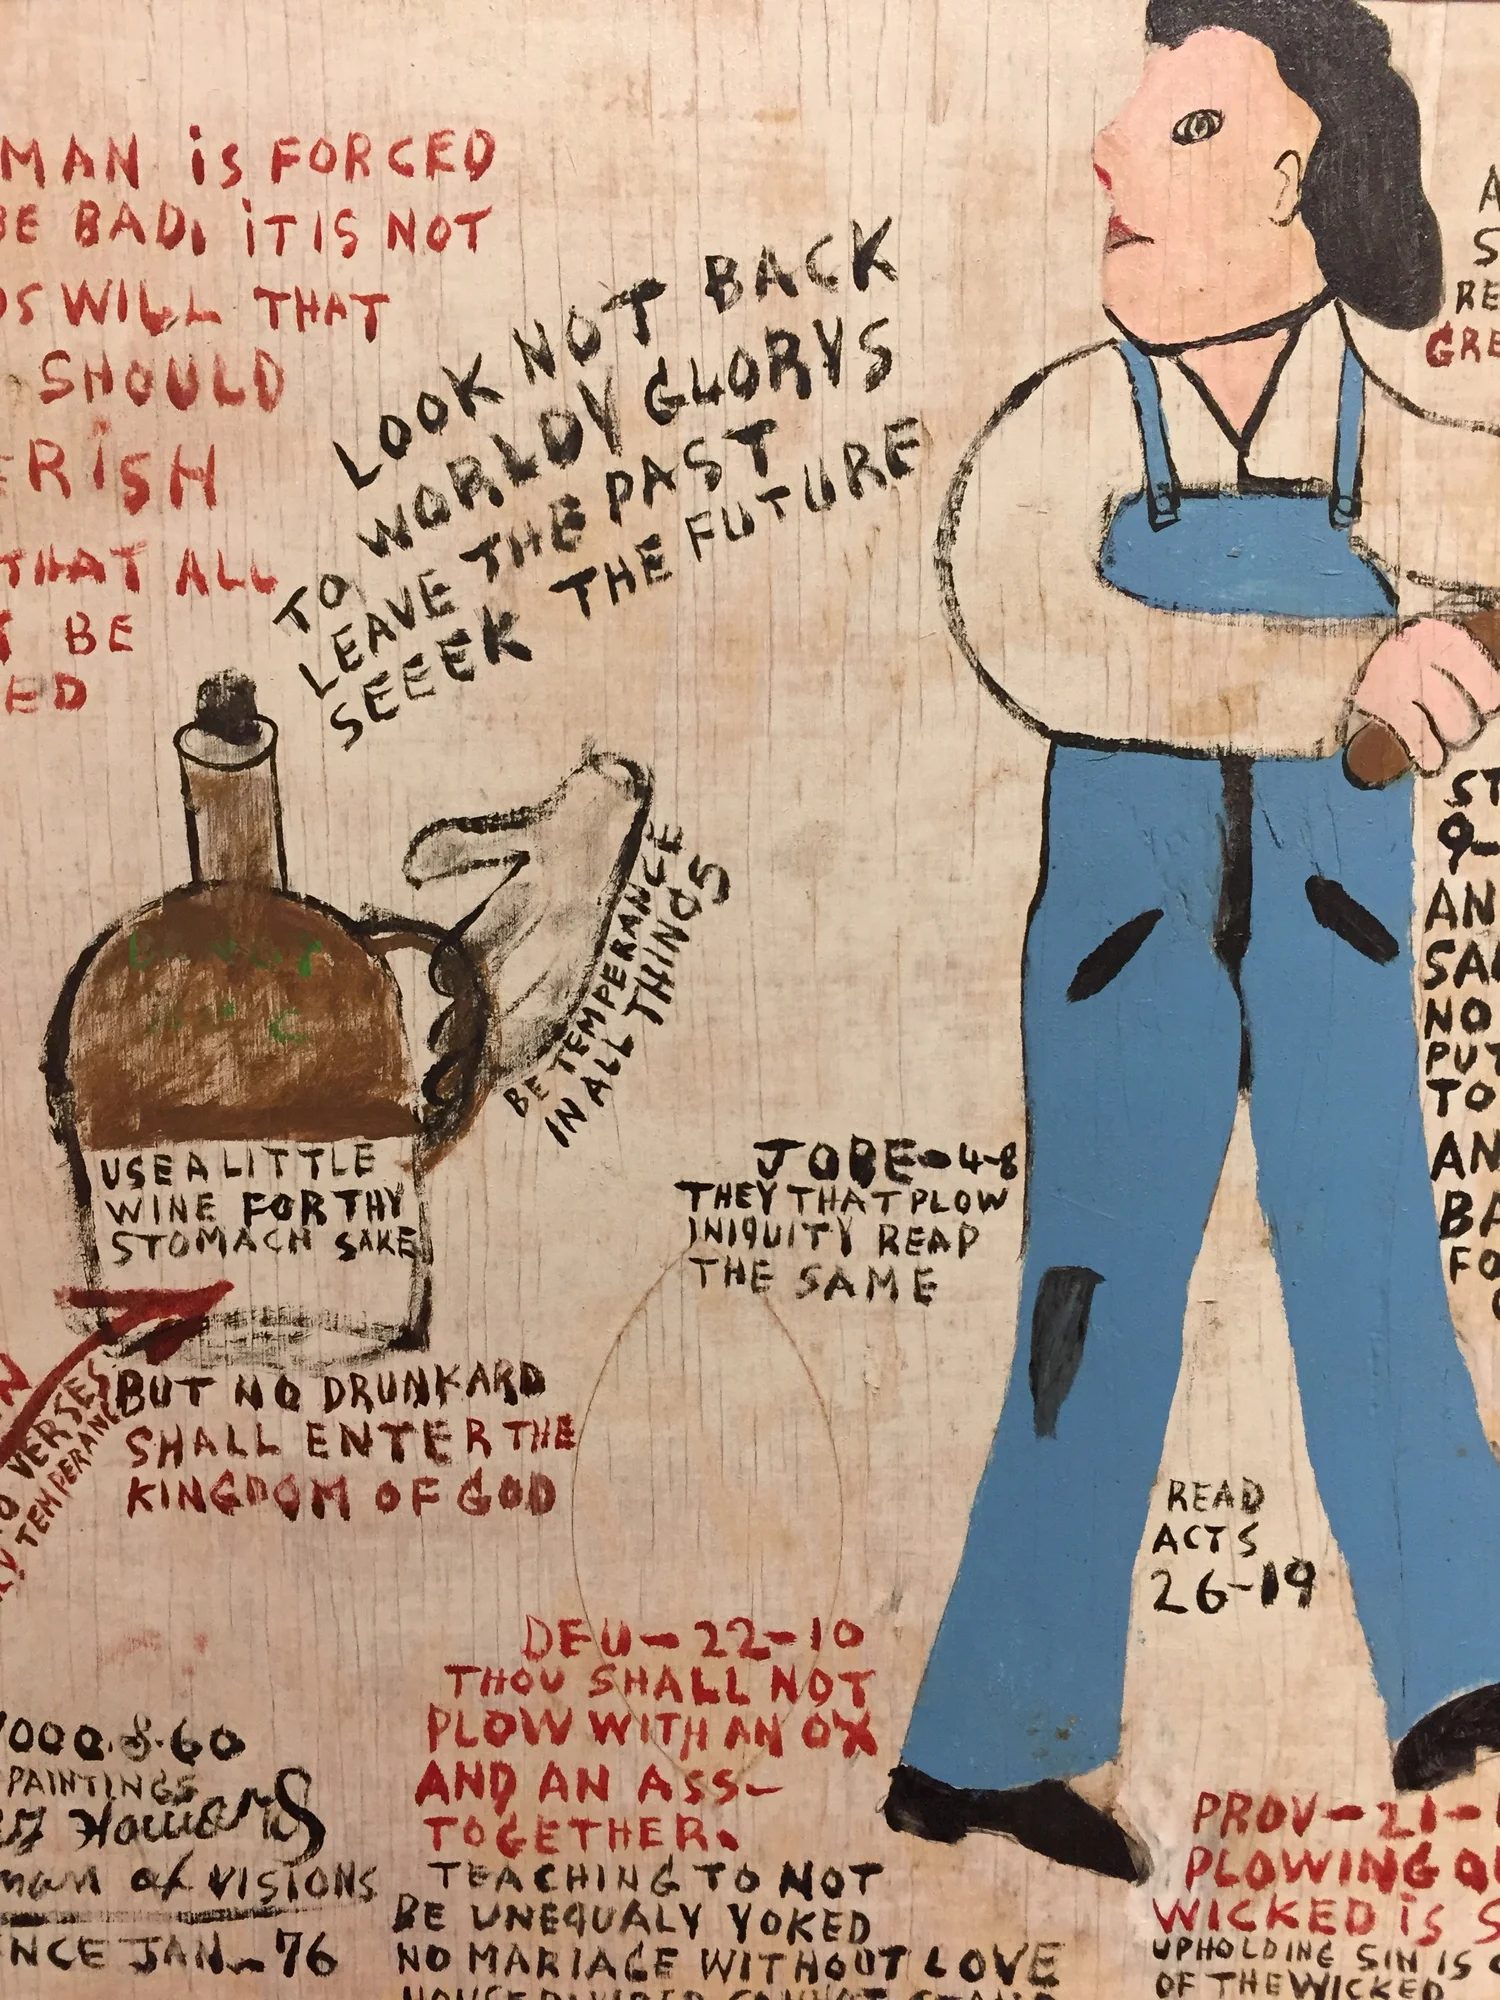 MAN is FORCED
BE BAD. iT IS NOT
WILL THAT
SHOULD
ERiSH
THAT ALL
BE
ED
LOOK NOT BACK
TO WORLDY GLORYS
LEAVE THE PAST
SEEEK THE FUTURE
BE TEMPERANCE
IN ALL THINGS
USE A LITTLE
WINE FOR THY
STOMACH SAKE
BUT NO DRUNKARD
SHALL ENTER THE
KINGDOM OF GOD
VERSES
TEMPERANCE
JOBE-4-8
THEY THAT PLOW
INIQUITY REAP
THE SAME
READ
ACTS
26-19
DEU-22-10
THOU SHALL NOT
PLOW WITH AN OX
AND AN ASS-
TOGETHER.
TEACHING TO NOT
BE UNEQUALY YOKED
NO MARIAGE WITHOUT LOVE
000.8.60
PAINTINGS
man of VISIONS
NCE JAN-76
A
S
RE
GRE
ST
9-
AN
SA
NO
PUT
TO
AN
BA
FO
PROV-21-
PLOWING O
WICKED iS S
UPHOLDING SIN IS
OF THE WICKED